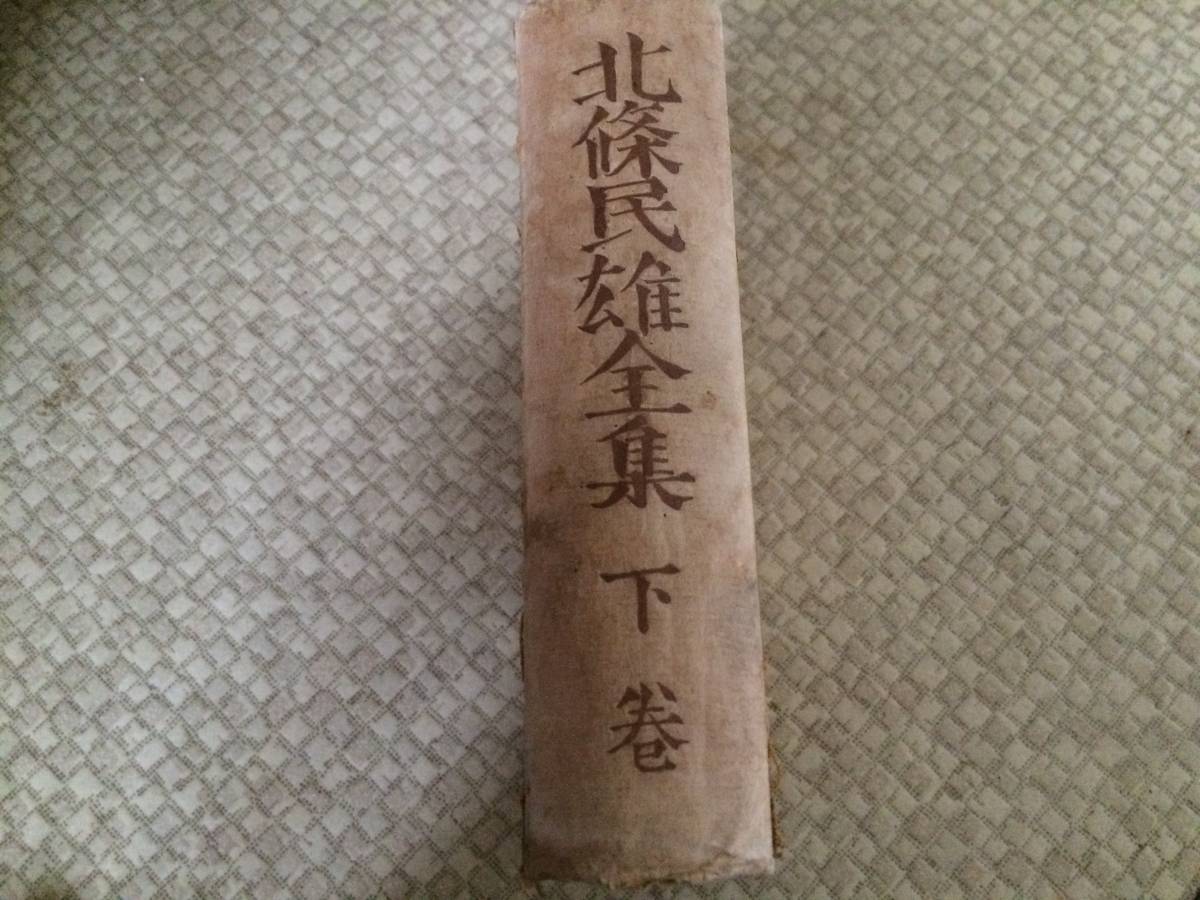 北條民雄全集 下卷